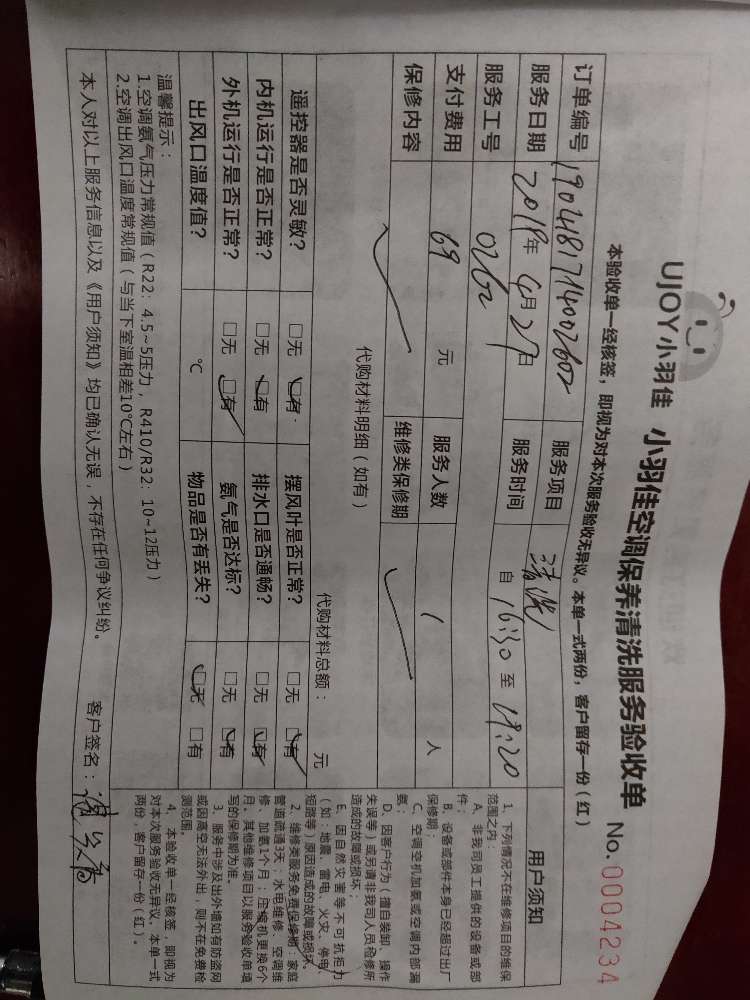 UJOY小羽佳 小羽佳空调保养清洗服务验收单 No. 0004234
本验收单一经核签，即视为对本次服务验收无异议。本单一式两份，客户留存一份（红）
订单编号 服务项目 清洗
服务日期 2019年 4月27日 服务时间 自 16:30 至
服务工号 0262
支付费用 69 元 服务人数 1 人
保修内容 维修类保修期
代购材料明细（如有） 代购材料总额： 元
遥控器是否灵敏？ □无 □有 摆风叶是否正常？ □无 □有
内机运行是否正常？ □无 □有 排水口是否通畅？ □无 □有
外机运行是否正常？ □无 □有 氨气是否达标？ □无 □有
出风口温度值？ ℃ 物品是否有丢失？ □无 □有
温馨提示：
1.空调氨气压力常规值（R22：4.5~5压力，R410/R32：10~12压力）
2.空调出风口温度常规值（与当下室温相差10℃左右）
本人对以上服务信息以及《用户须知》均已确认无误，不存在任何争议纠纷。 客户签名：
用户须知
1、下列情况不在维修项目的维保
范围之内：
A、非我司员工提供的设备或部
件；
B、设备或部件本身已经超过出厂
保修期；
C、空调空机加氨或空调内部漏
氨；
D、因客户行为（擅自装卸、操作
失误等）或另请非我司人员检修所
造成的故障或损坏；
E、因自然灾害等不可抗拒力
（如：地震、雷电、火灾、停电、
短路等）原因造成的故障或损坏。
2、维修类服务免费保修期：家庭
管道疏通3天；水电维修、空调维
修、加氨1个月；压缩机更换6个
月，其他维修项目以服务验收单填
写的保修期为准。
3、服务中涉及出外墙如有防盗网
或因高空无法外出，则不在免费检
测范围。
4、本验收单一经核签，即视为
对本次服务验收无异议，本单一式
两份，客户留存一份（红）。